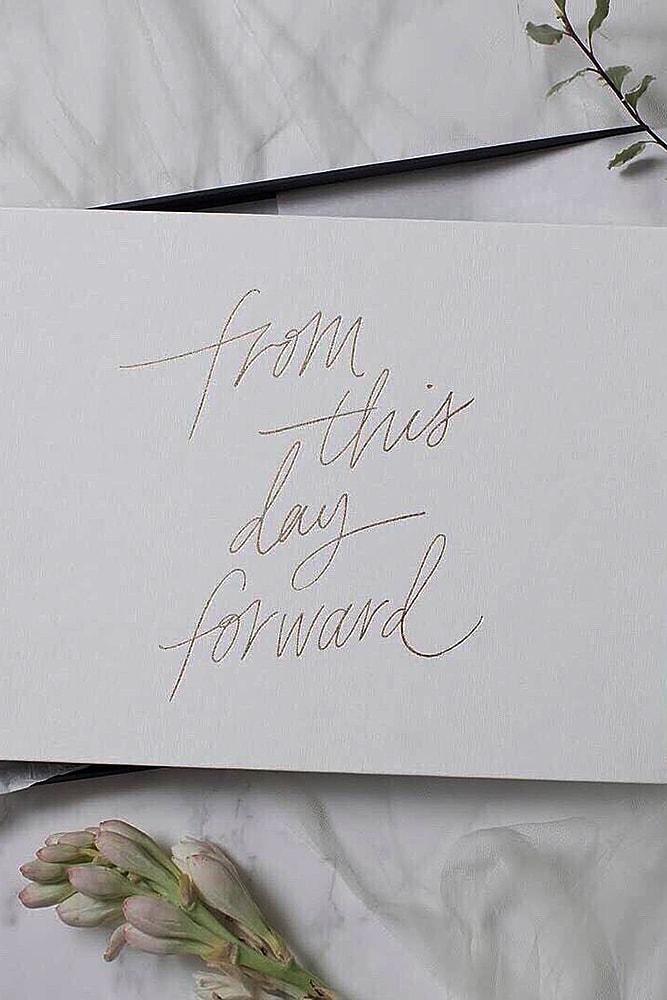 from
this
day
forward